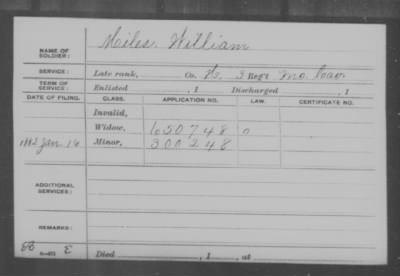 NAME OF SOLDIER: Miles, William
SERVICE: Late rank, Co. H, 3 Reg't Mo. Cav
TERM OF SERVICE: Enlisted , 1 Discharged , 1
DATE OF FILING. CLASS. APPLICATION NO. LAW. CERTIFICATE NO.
Invalid,
Widow, 650748 0
1882 Jan 16 Minor, 300248
ADDITIONAL SERVICES:
REMARKS:
Died , 1 , at